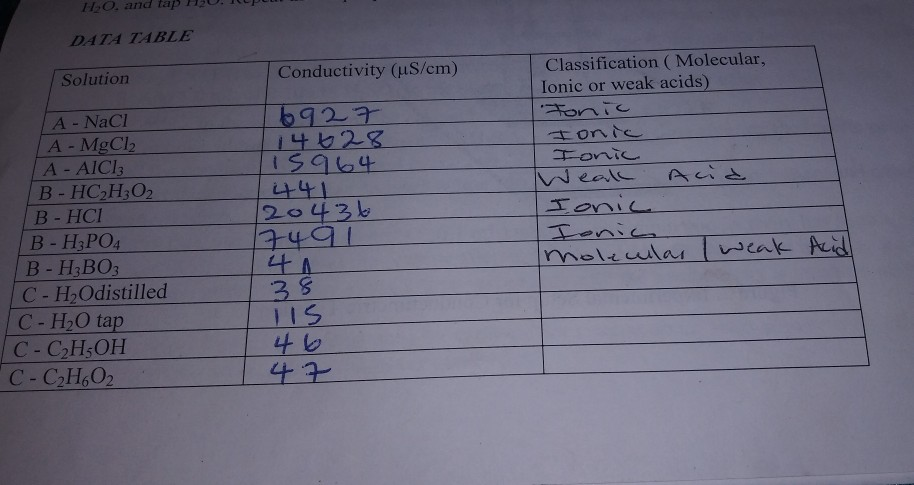 H₂O, and tap H₂O.
DATA TABLE
Solution Conductivity (µS/cm) Classification ( Molecular,
Ionic or weak acids)
A - NaCl 6927 Ionic
A - MgCl₂ 14628 Ionic
A - AlCl₃ 15964 Ionic
B - HC₂H₃O₂ 441 Weak Acid
B - HCl 20436 Ionic
B - H₃PO₄ 7491 Ionic
B - H₃BO₃ 4 Molecular / weak Acid
C - H₂Odistilled 38
C - H₂O tap 115
C - C₂H₅OH 46
C - C₂H₆O₂ 47